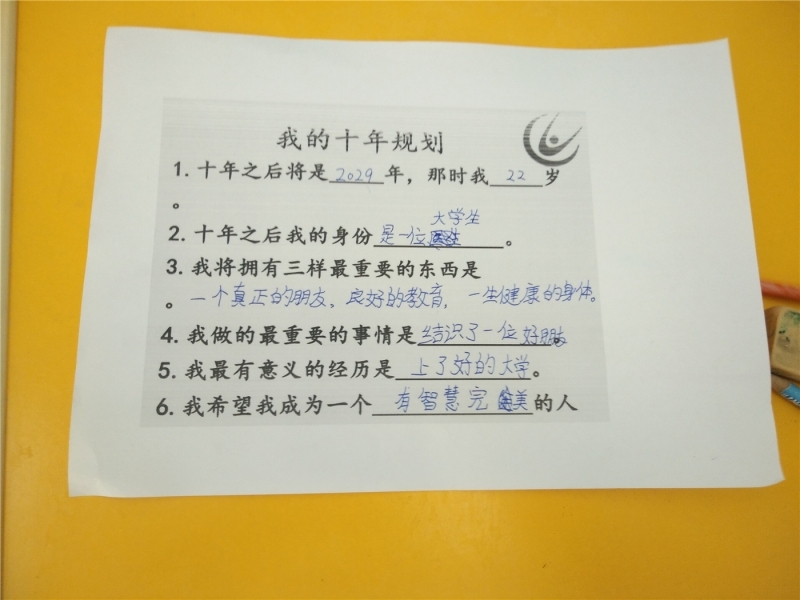 我的十年规划
1. 十年之后将是2029年，那时我22岁
。
大学生
2. 十年之后我的身份是一位。
3. 我将拥有三样最重要的东西是
。一个真正的朋友、良好的教育，一生健康的身体。
4. 我做的最重要的事情是结识了一位好朋友。
5. 我最有意义的经历是上了好的大学。
6. 我希望我成为一个有智慧完美的人